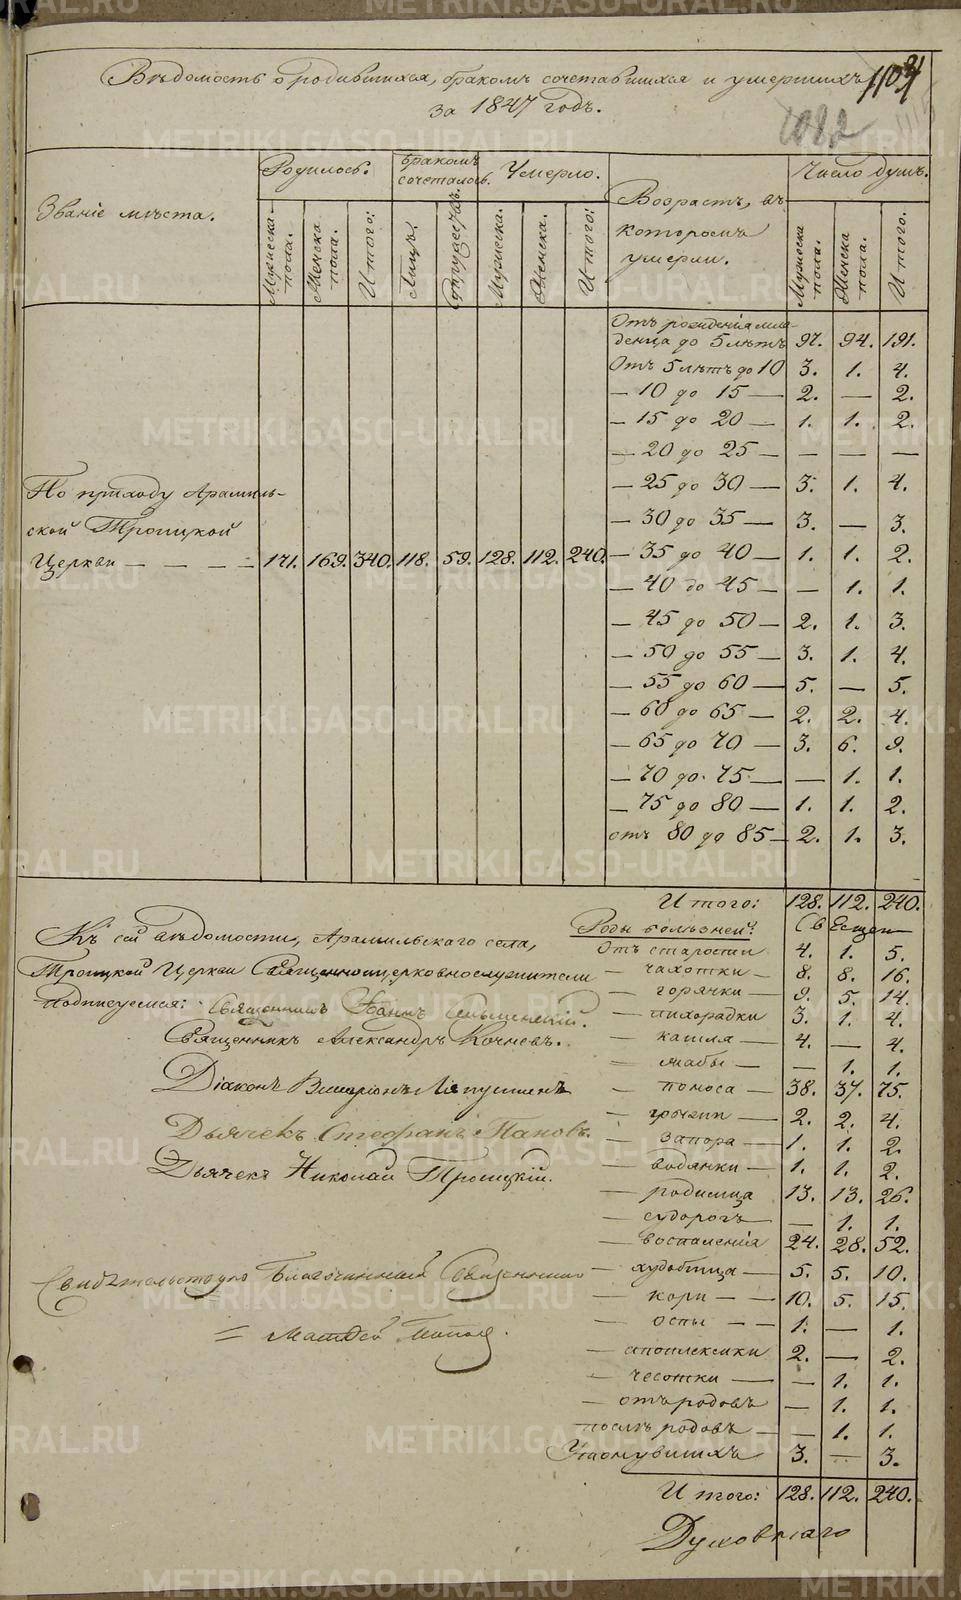 Вѣдомость о родившихся, бракомъ сочетавшихся и умершихъ
за 1847 годъ.
1082
Званіе мѣста.
Родилось.
Мужеска пола.
Женска пола.
Итого:
Бракомъ сочеталось.
Лицъ.
Супружествъ.
Умерло.
Мужеска.
Женска.
Итого:
Возрастъ, въ
которомъ
умерли.
Число душъ.
Мужеска пола.
Женска пола.
Итого.
По приходу Арамиль-
ской Троицкой
Церкви — — — — 171. 169. 340. 118. 59. 128. 112. 240.
Отъ рожденія мла-
денца до 5 лѣтъ 97. 94. 191.
Отъ 5 лѣтъ до 10 3. 1. 4.
— 10 до 15 — 2. — 2.
— 15 до 20 — 1. 1. 2.
— 20 до 25 — — — —
— 25 до 30 — 3. 1. 4.
— 30 до 35 — 3. — 3.
— 35 до 40 — 1. 1. 2.
— 40 до 45 — — 1. 1.
— 45 до 50 — 2. 1. 3.
— 50 до 55 — 3. 1. 4.
— 55 до 60 — 5. — 5.
— 60 до 65 — 2. 2. 4.
— 65 до 70 — 3. 6. 9.
— 70 до 75 — — 1. 1.
— 75 до 80 — 1. 1. 2.
отъ 80 до 85 — 2. 1. 3.
Итого: 128. 112. 240.
Роды болѣзней:
Отъ старости 4. 1. 5.
— чахотки — 8. 8. 16.
— горячки — 9. 5. 14.
— лихорадки 3. 1. 4.
— кашля — 4. — 4.
— жабы — — 1. 1.
— поноса — 38. 37. 75.
— грыжи — 2. 2. 4.
— запора — 1. 1. 2.
— водянки — 1. 1. 2.
— родимца 13. 13. 26.
— судорогъ — — 1. 1.
— воспаленія 24. 28. 52.
— худобища — 5. 5. 10.
— кори — — 10. 5. 15.
— оспы — — 1. — 1.
— апоплексики 2. — 2.
— чесотки — — 1. 1.
— отъ родовъ — 1. 1.
— послѣ родовъ — — 1. 1.
Утонувшихъ 3. — 3.
Итого: 128. 112. 240.
Духовнаго
Къ сей вѣдомости, Арамильскаго села,
Троицкой Церкви Священноцерковнослужители
подписуемся: Священникъ
Священникъ Александръ Кочневъ.
Діаконъ Лапушинъ
Дьячекъ Стефанъ Пановъ.
Дьячекъ Николай Троицкій.
Свидѣтельствую Благочинный Священникъ
= Матѳей Поповъ.
METRIKI.GASO-URAL.RU